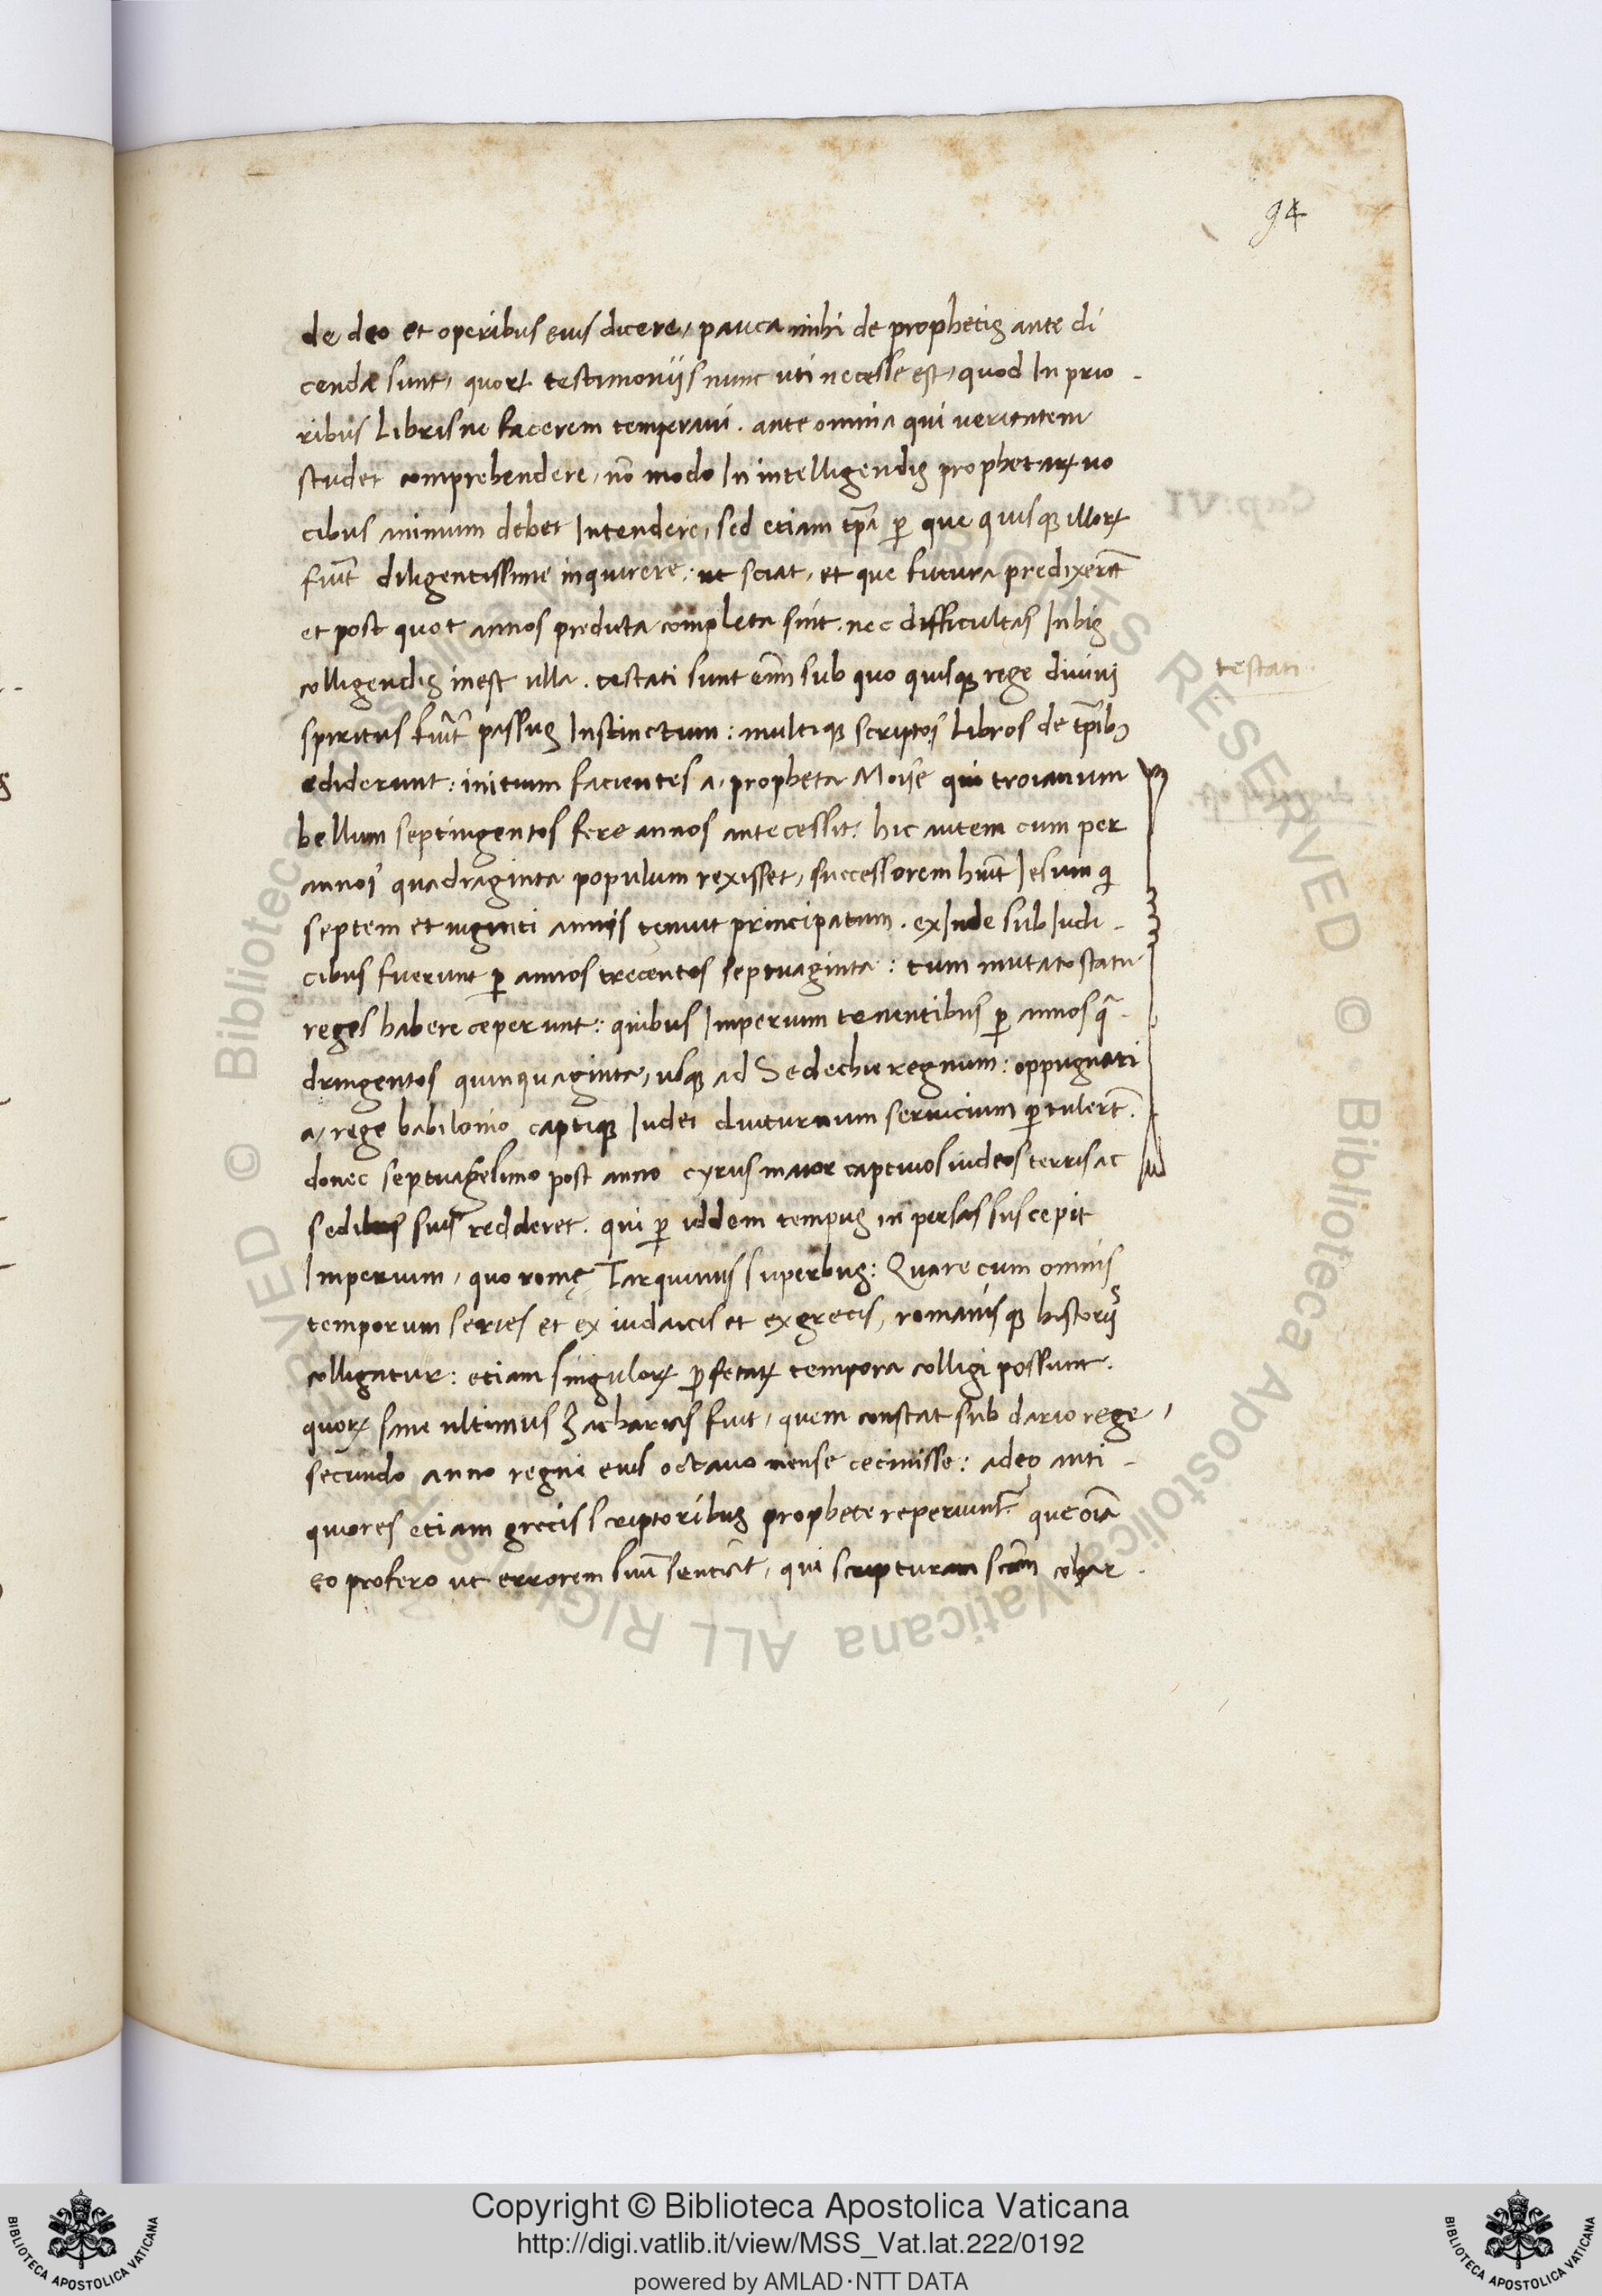 94
de deo et operibus eius dicere, pauca mihi de prophetis ante di
cenda sunt, quoꝝ testimoniis nunc uti necesse est, quod In prio-
ribus Libris ne facerem temperaui. ante omnia qui ueritatem
studet comprehendere, nō modo In intelligendis prophetaꝝ uo
cibus animum debet Intendere, sed etiam tp̄a ꝑ que quisqꝫ illoꝝ
fuīt diligentissime inquirere: ut sciat, et que futura predixerūt
et post quot annos predicta completa sint. nec difficultas In his
colligendis inest ulla. testati sunt enī sub quo quisqꝫ rege diuinj
testati
spiritus fuīt passus Instinctum: multiqꝫ scriptos Libros de tp̄ibꝫ
ediderunt: initium facientes a, propheta Moise qui troianum
bellum septingentos fere annos antecessit: hic autem cum per
annos quadraginta populum rexisset, successorem hūit Iesum qi
septem et uiginti annis tenuit principatum. exInde sub Iudi-
cibus fuerunt ꝑ annos trecentos septuaginta: tum mutato statu
reges habere ceperunt: quibus Imperium tenentibus ꝑ annos qᵃ-
dringentos quinquaginta, usqꝫ ad Sedechie regnum: oppugnati
a, rege babilonio captiqꝫ Iudei diuturnum seruicium ꝑtulerūt.
donec septuagesimo post anno cyrus maior captiuos iudeos terris ac
sedibus suis redderet. qui ꝑ iddem tempus in persas suscepit
Imperium, quo romę Tarquinius superbus: Quare cum omnis
temporum series et ex iudaicis et ex grecis, romanisqꝫ historijs
colligatur: etiam singuloꝝ ꝓfetaꝝ tempora colligi possunt.
quoꝝ sane ultimus Zacharias fuit, quem constat sub dario rege,
secundo anno regni eius octauo mense cecinisse: adeo anti-
quiores etiam grecis scriptoribus prophete reperiunt᷑ que oīa
eo profero ut errorem suū sentiāt, qui scripturam scām
© Biblioteca Apostolica Vaticana ALL RIGHTS RESERVED
Copyright © Biblioteca Apostolica Vaticana
http://digi.vatlib.it/view/MSS_Vat.lat.222/0192
powered by AMLAD·NTT DATA
BIBLIOTECA APOSTOLICA VATICANA
BIBLIOTECA APOSTOLICA VATICANA